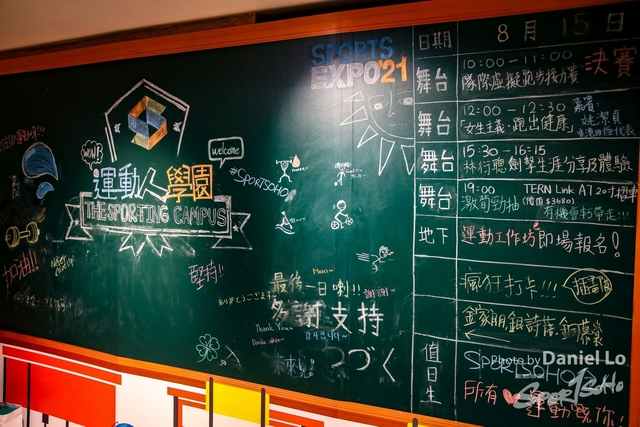 SPORTS
EXPO'21
welcome
WOW!
運動人學園
THE SPORTING CAMPUS
#SPORTSOHO
加油!!
堅持!!
最後一日喇!!
謝謝~
Merci~
ありがとうございます
多謝支持
Thank You~
감사합니다~
未來見!
つづく
日期 8月15日
舞台 10:00-11:00 決賽
隊際虛擬跑步接力賽
舞台 12:00-12:30 嘉賓:
「女生主義·跑出健康」 姚潔貞
舞台 15:30-16:15
林衍聰劍擊生涯分享及體驗
舞台 19:00 TERN Link A7 20寸摺車
激筍勁抽 (價值$3680)
有機會車5帶走!!!
地下 運動工作坊即場報名!
瘋狂打卡!!!
金家朗 銀詩蓓 銅慕裳
值日生 SPORTSOHO
所有
運動嘅你!
Photo by Daniel Lo
SPORTSOHO